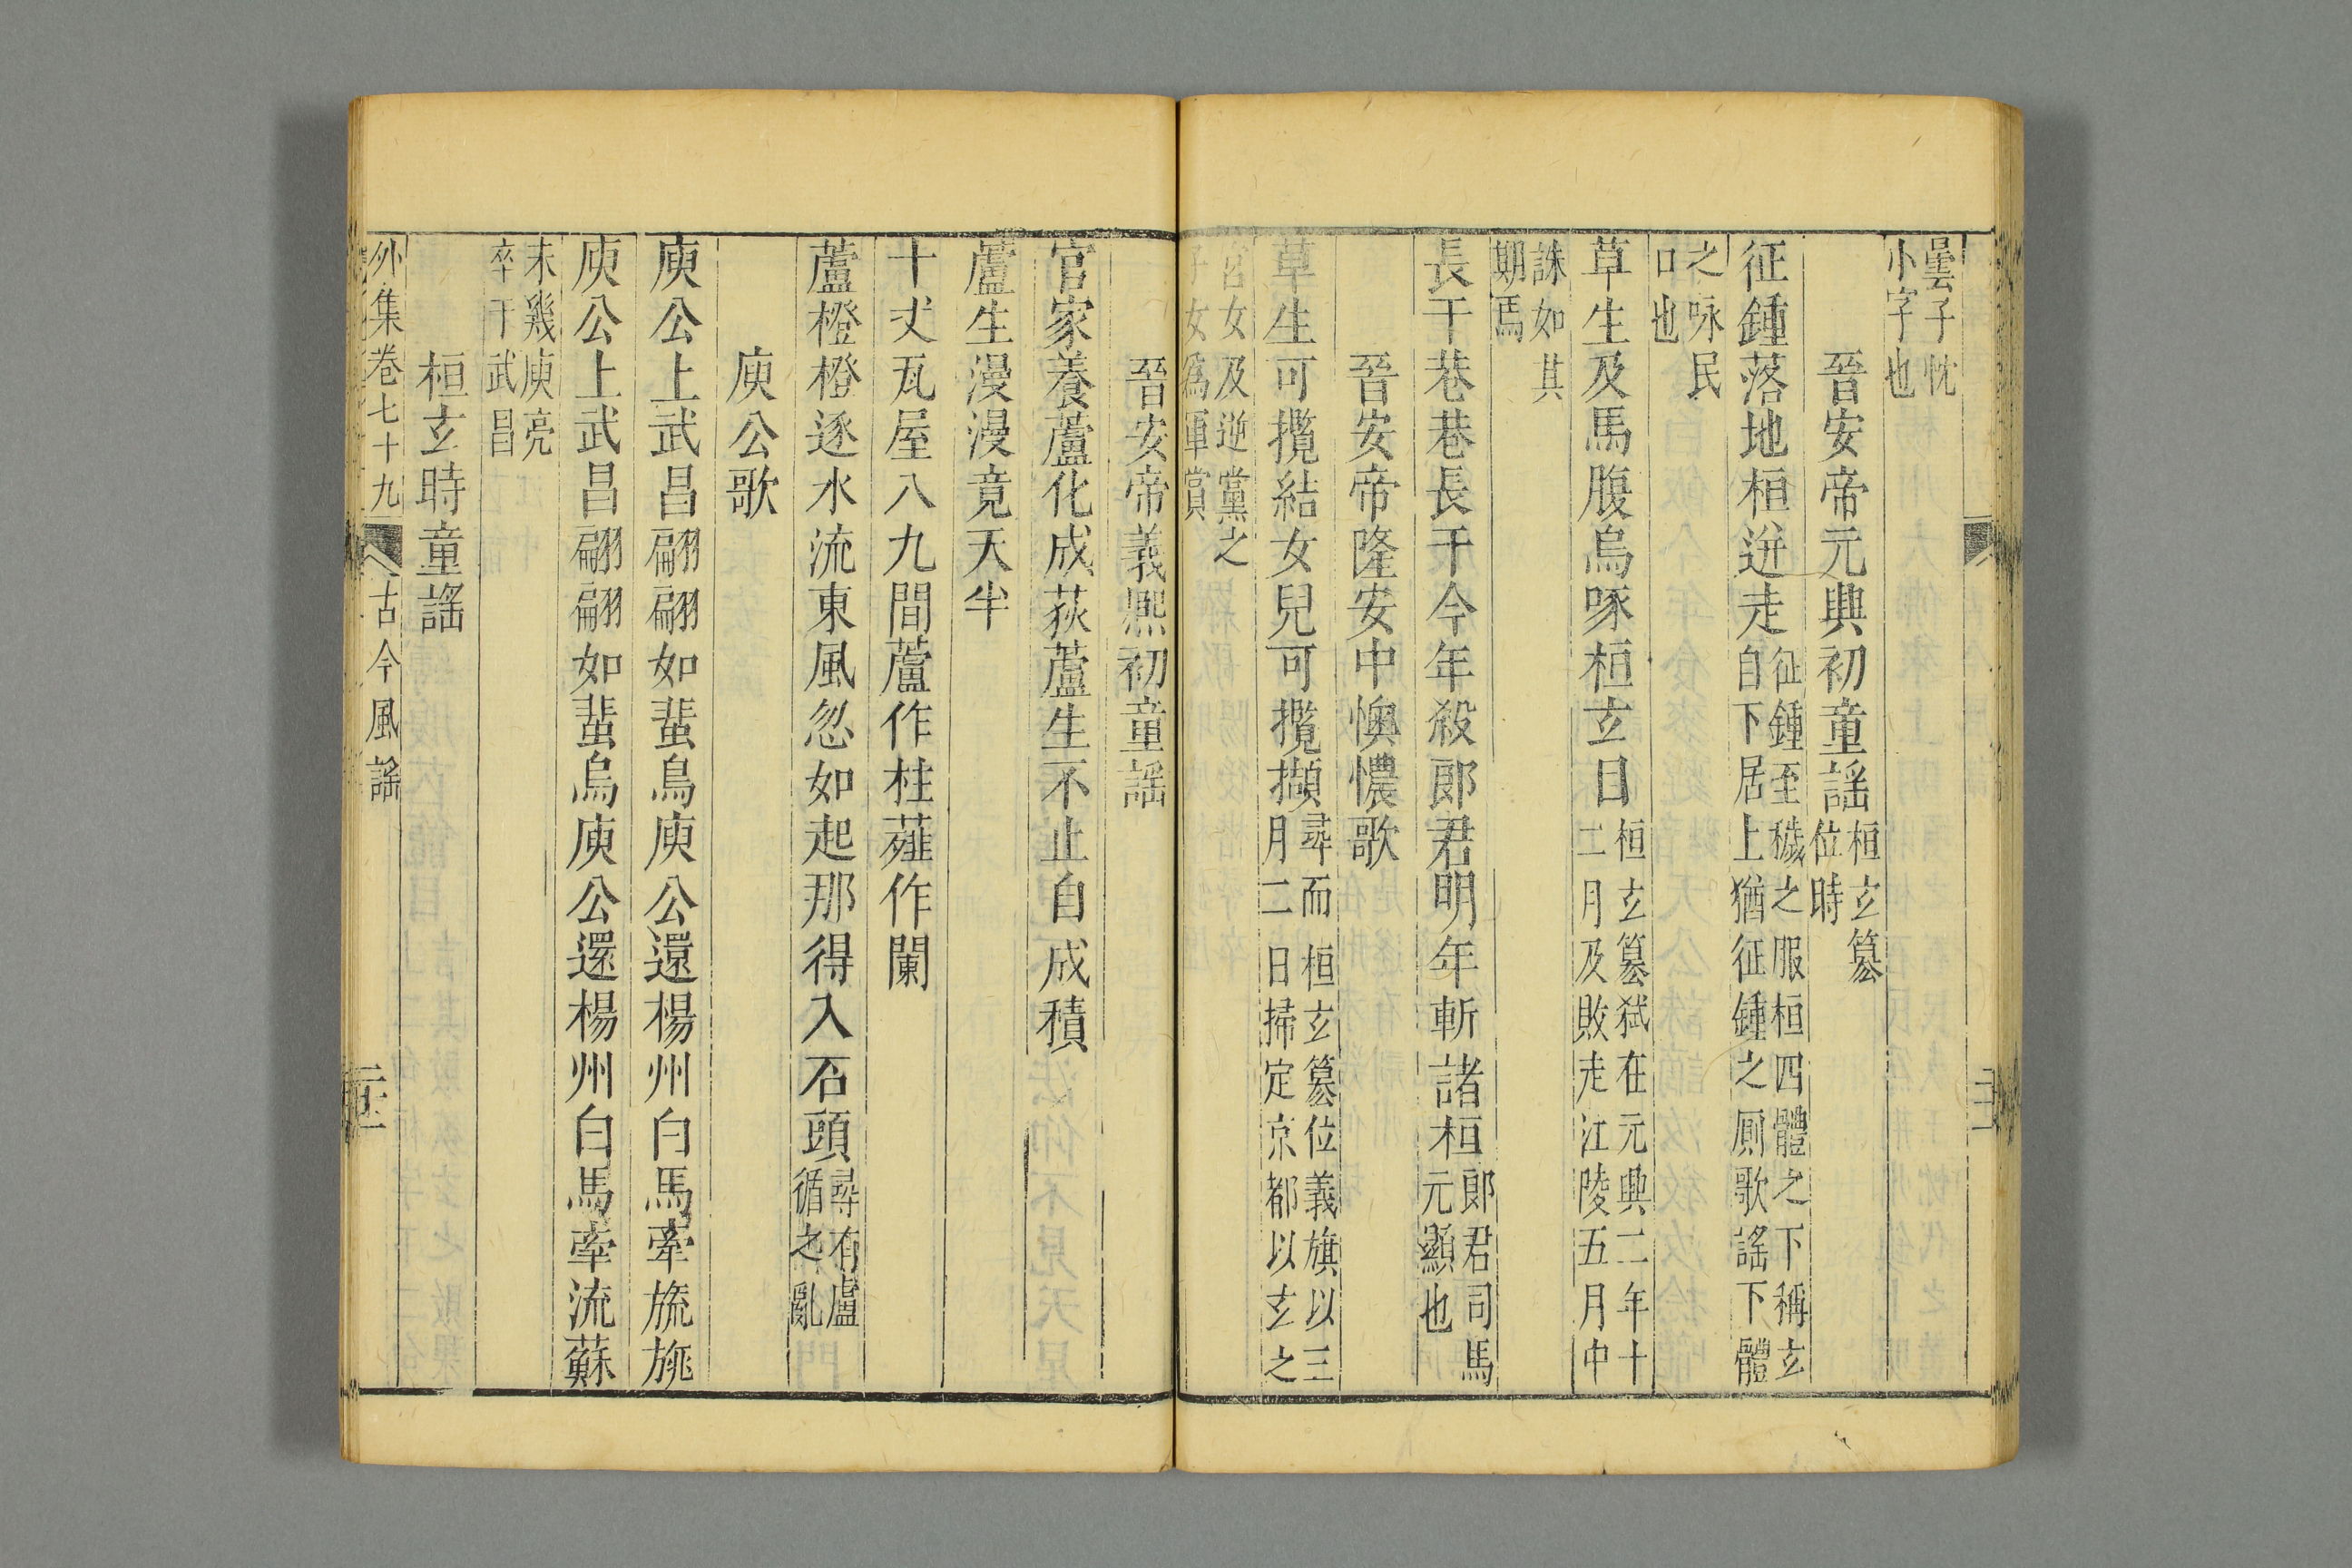 曇子忱
小字也
晉安帝元興初童謠桓玄簒
位時
征鍾落地桓迸走征鍾至穢之服桓四體之下稱玄
自下居上猶征鍾之厠歌謠下體
之咏民
口也
草生及馬腹烏啄桓玄目桓玄簒弑在元興二年十
二月及敗走江陵五月中
誅如其
期焉
長干巷巷長干今年殺郎君明年斬諸桓郎君司馬
元顯也
晉安帝隆安中懊憹歌
草生可攬結女兒可攬擷尋而桓玄簒位義旗以三
月二日掃定京都以玄之
宮女及逆黨之
子女爲軍賞
晉安帝義熙初童謠
官家養蘆化成荻蘆生不止自成積
蘆生漫漫竟天半
十丈瓦屋八九間蘆作柱薤作闌
蘆橙橙逐水流東風忽如起那得入石頭尋有盧
循之亂
庾公歌
庾公上武昌翩翩如蜚鳥庾公還楊州白馬牽旒旐
庾公上武昌翩翩如蜚烏庾公還楊州白馬牽流蘇
未幾庾亮
卒于武昌
桓玄時童謠
外集卷七十九 古今風謠